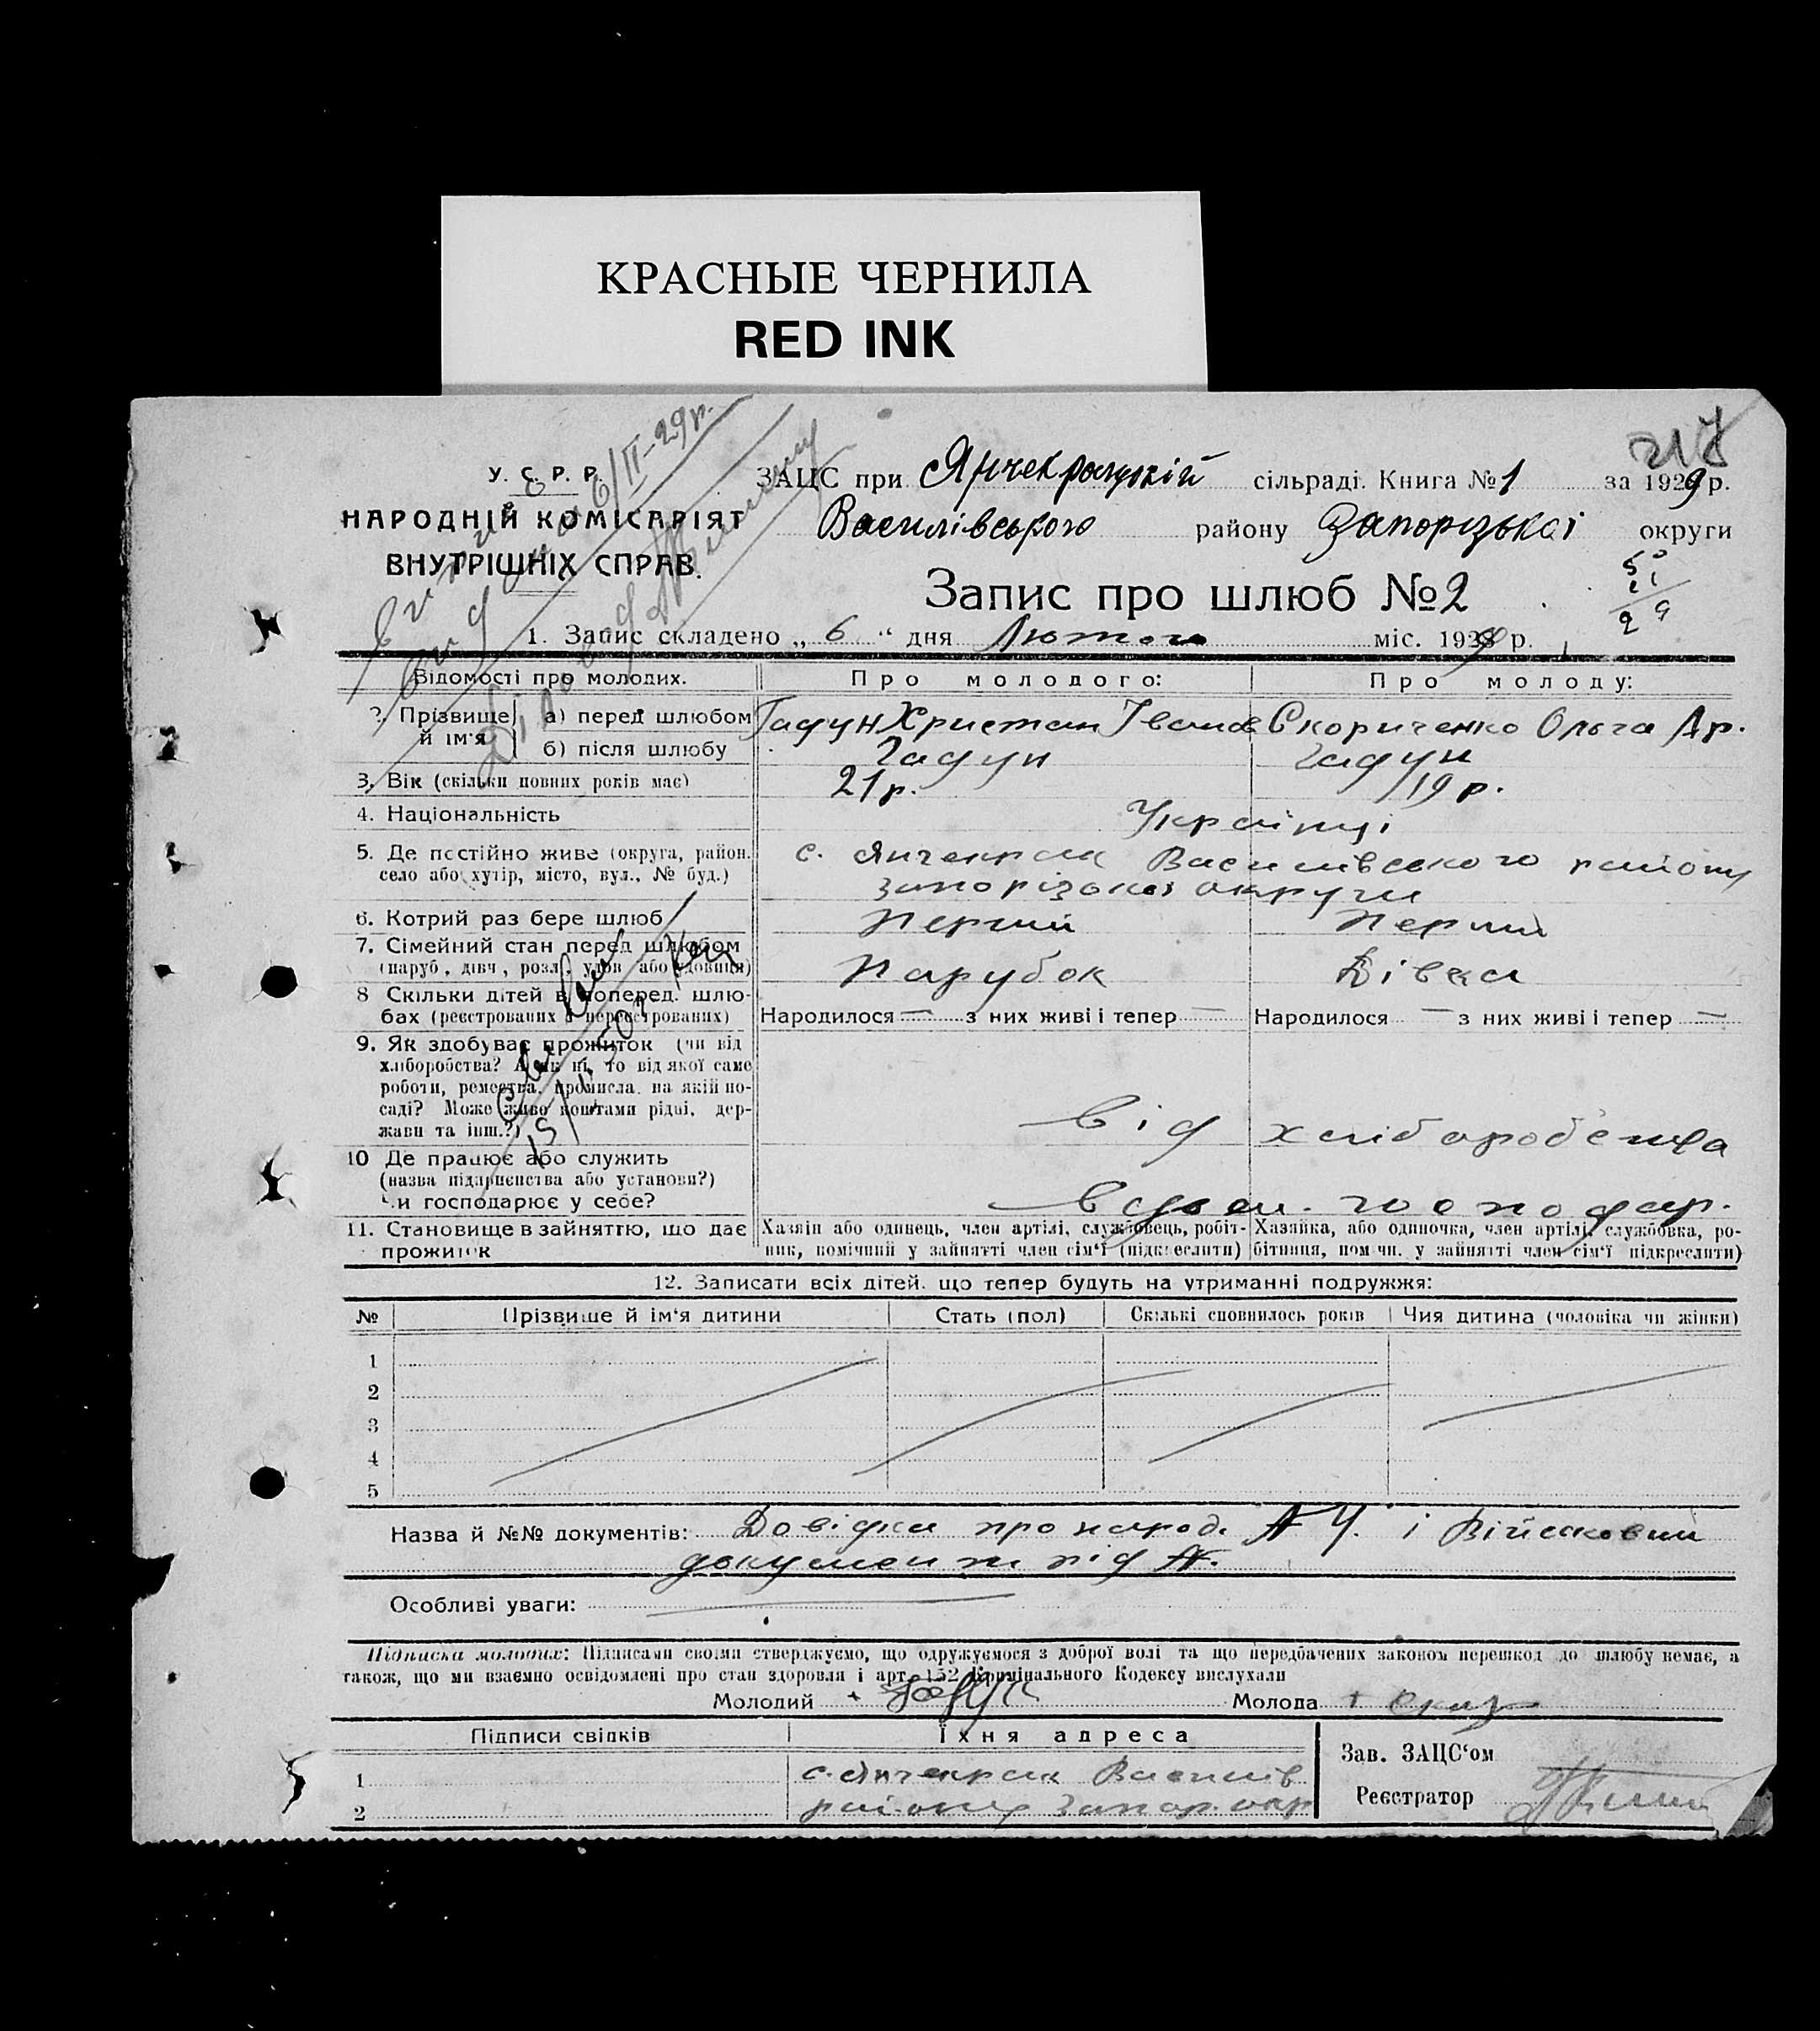 КРАСНЫЕ ЧЕРНИЛА
RED INK
217
У. С. Р. Р.
НАРОДНІЙ КОМІСАРІЯТ
ВНУТРІШНІХ СПРАВ.
6/II-29р.
ЗАЦС при Янчекрацькій сільраді. Книга №1 за 1929р.
Василівського району Запорізької округи
Запис про шлюб №2
50
21
29
1. Запис складено „ 6 “ дня Лютого міс. 1929 р.
Відомості про молодих. Про молодого: Про молоду:
2. Прізвище й ім'я а) перед шлюбом Гадун Христан Іванов Скориченко Ольга Ар.
б) після шлюбу Гадун Гадун
3. Вік (скільки повних років має) 21 р. 19 р.
4. Національність Українці
5. Де постійно живе (округа, район, с. Янчекрак Василівського району
село або хутір, місто, вул., № буд.) Запорізької округи
6. Котрий раз бере шлюб Перший Перший
7. Сімейний стан перед шлюбом
(паруб., дівч., розл., удів. або удовиця) Парубок Дівка
8 Скільки дітей в поперед. шлю-
бах (реєстрованих і нереєстрованих) Народилося — з них живі і тепер — Народилося — з них живі і тепер —
9. Як здобуває прожиток (чи від
хліборобства? А як ні, то від якої саме
роботи, ремества, промисла, на якій по-
саді? Може живе коштами рідні, дер-
жави та інш.?) Від хліборобства
10 Де працює або служить
(назва підприємства або установи?)
Чи господарює у себе? В свом. господар.
11. Становище в зайняттю, що дає Хазяїн або одинець, член артілі, службовець, робіт- Хазяйка, або одиночка, член артілі, службовка, ро-
прожиток ник, помічний у зайнятті член сім'ї (підкреслити) бітниця, помічн. у зайнятті член сім'ї підкреслити)
12. Записати всіх дітей, що тепер будуть на утриманні подружжя:
№ Прізвище й ім'я дитини Стать (пол) Скількі сповнилось років Чия дитина (чоловіка чи жінки)
1
2
3
4
5
Назва й №№ документів: Довідка про народ. і Військовий
документ під №.
Особливі уваги:
Підписка молодих: Підписами своїми стверджуємо, що одружуємося з доброї волі та що передбачених законом перешкод до шлюбу немає, а
також, що ми взаємно освідомлені про стан здоровля і арт. 152 Кримінального Кодексу вислухали
Молодий + Гадун Молода +
Підписи свідків Їхня адреса
1 с. Янчекрак Василів
2 району Запор. окр
Зав. ЗАЦС'ом
Реєстратор